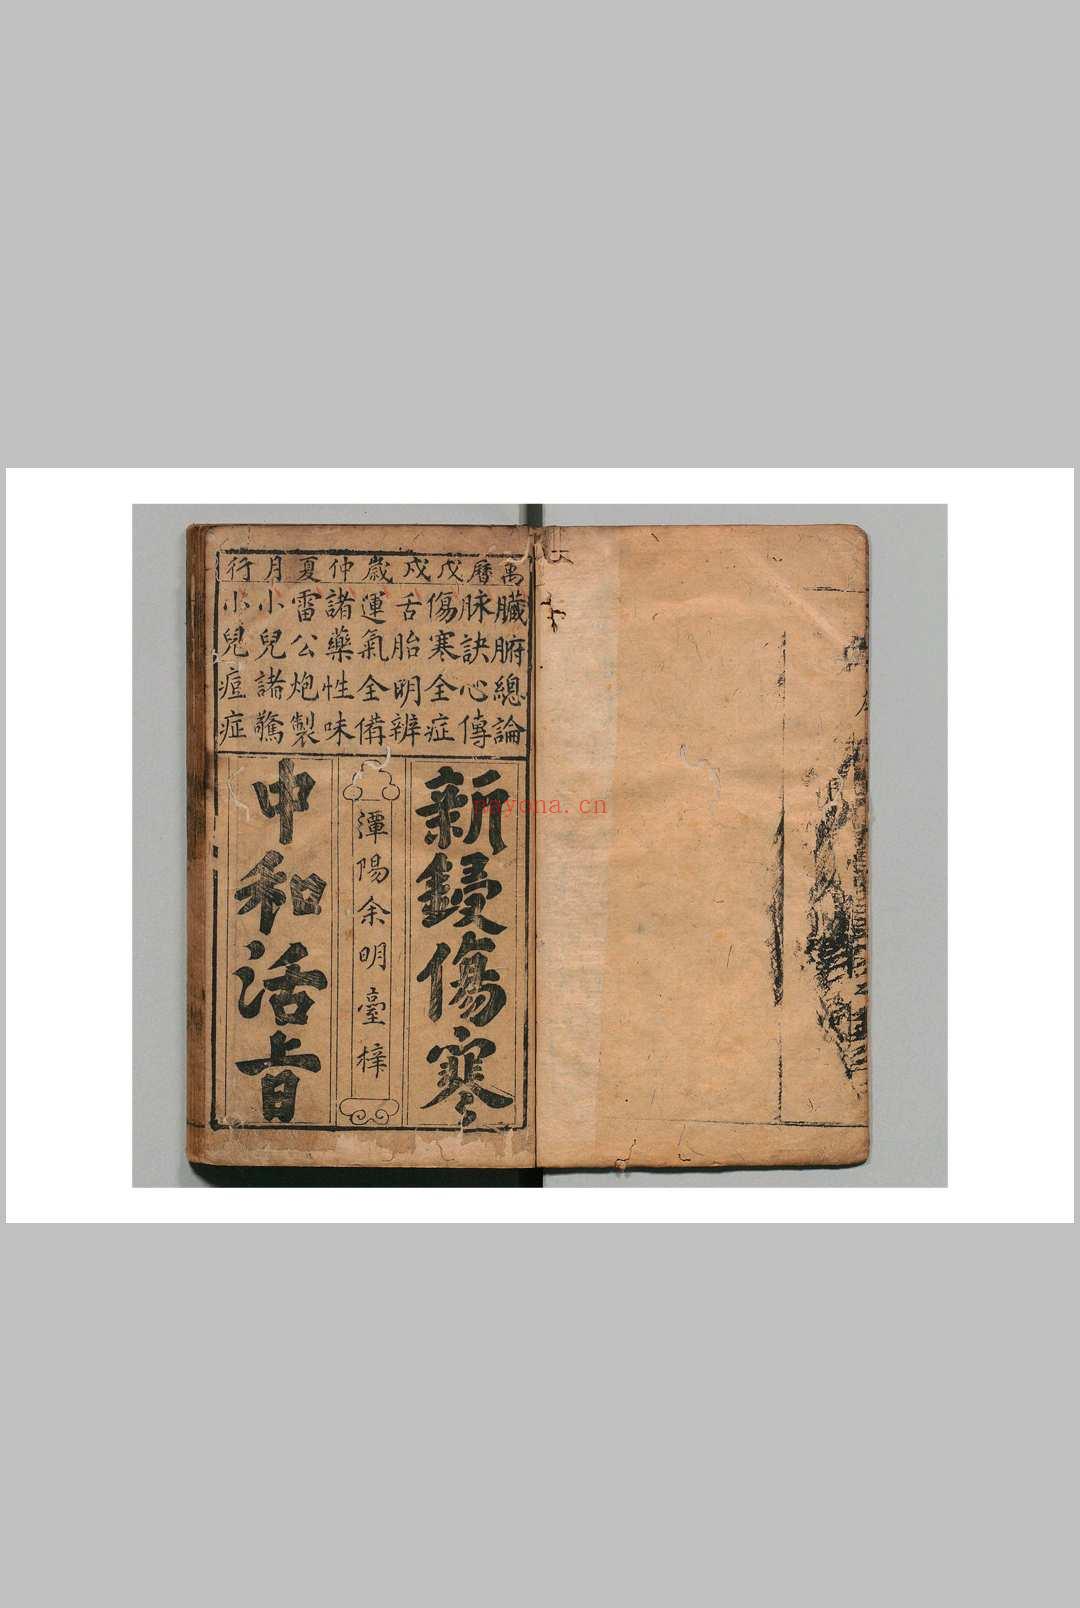 萬曆戊戌歲仲夏月行
臟腑總論
脉訣心傳
傷寒全症
舌胎明辨
運氣全備
諸藥性味
雷公炮製
小兒諸驚
小兒痘症
新鋟傷寒
潭陽余明臺梓
中和活旨
nayona.cn